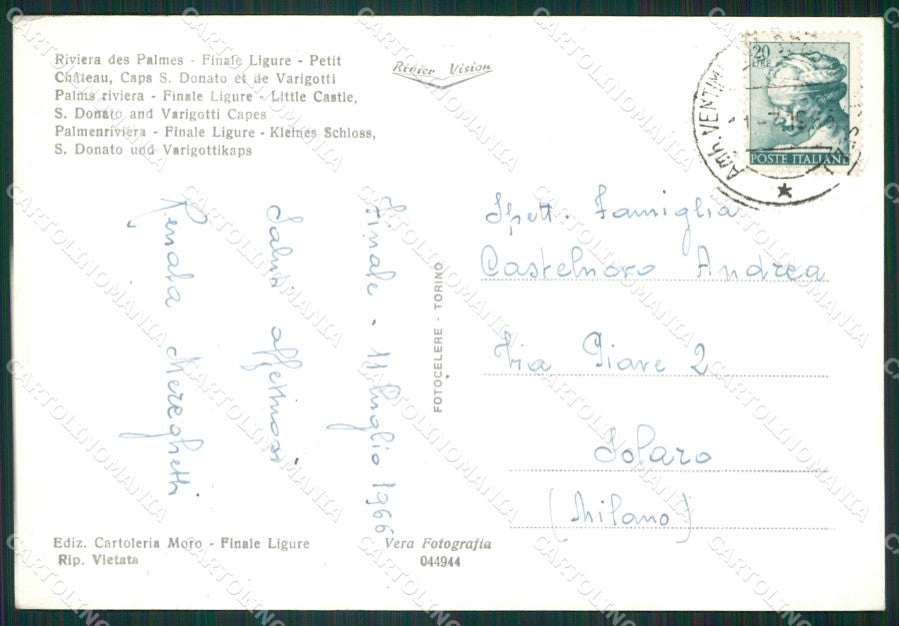 Riviera des Palmes - Finale Ligure - Petit
Château, Caps S. Donato et de Varigotti
Palms riviera - Finale Ligure - Little Castle,
S. Donato and Varigotti Capes
Palmenriviera - Finale Ligure - Kleines Schloss,
S. Donato und Varigottikaps
Rivier Vision
20
LIRE
POSTE ITALIANE
Amb. VENTIM
Finale - 11 luglio 1966
Saluti affettuosi
Renata Mereghetti
FOTOCELERE - TORINO
Spett. Famiglia
Castelnovo Andrea
Via Piave 2
Solaro
(Milano)
Ediz. Cartoleria Moro - Finale Ligure
Rip. Vietata
Vera Fotografia
044944
CARTOLINOMANIA